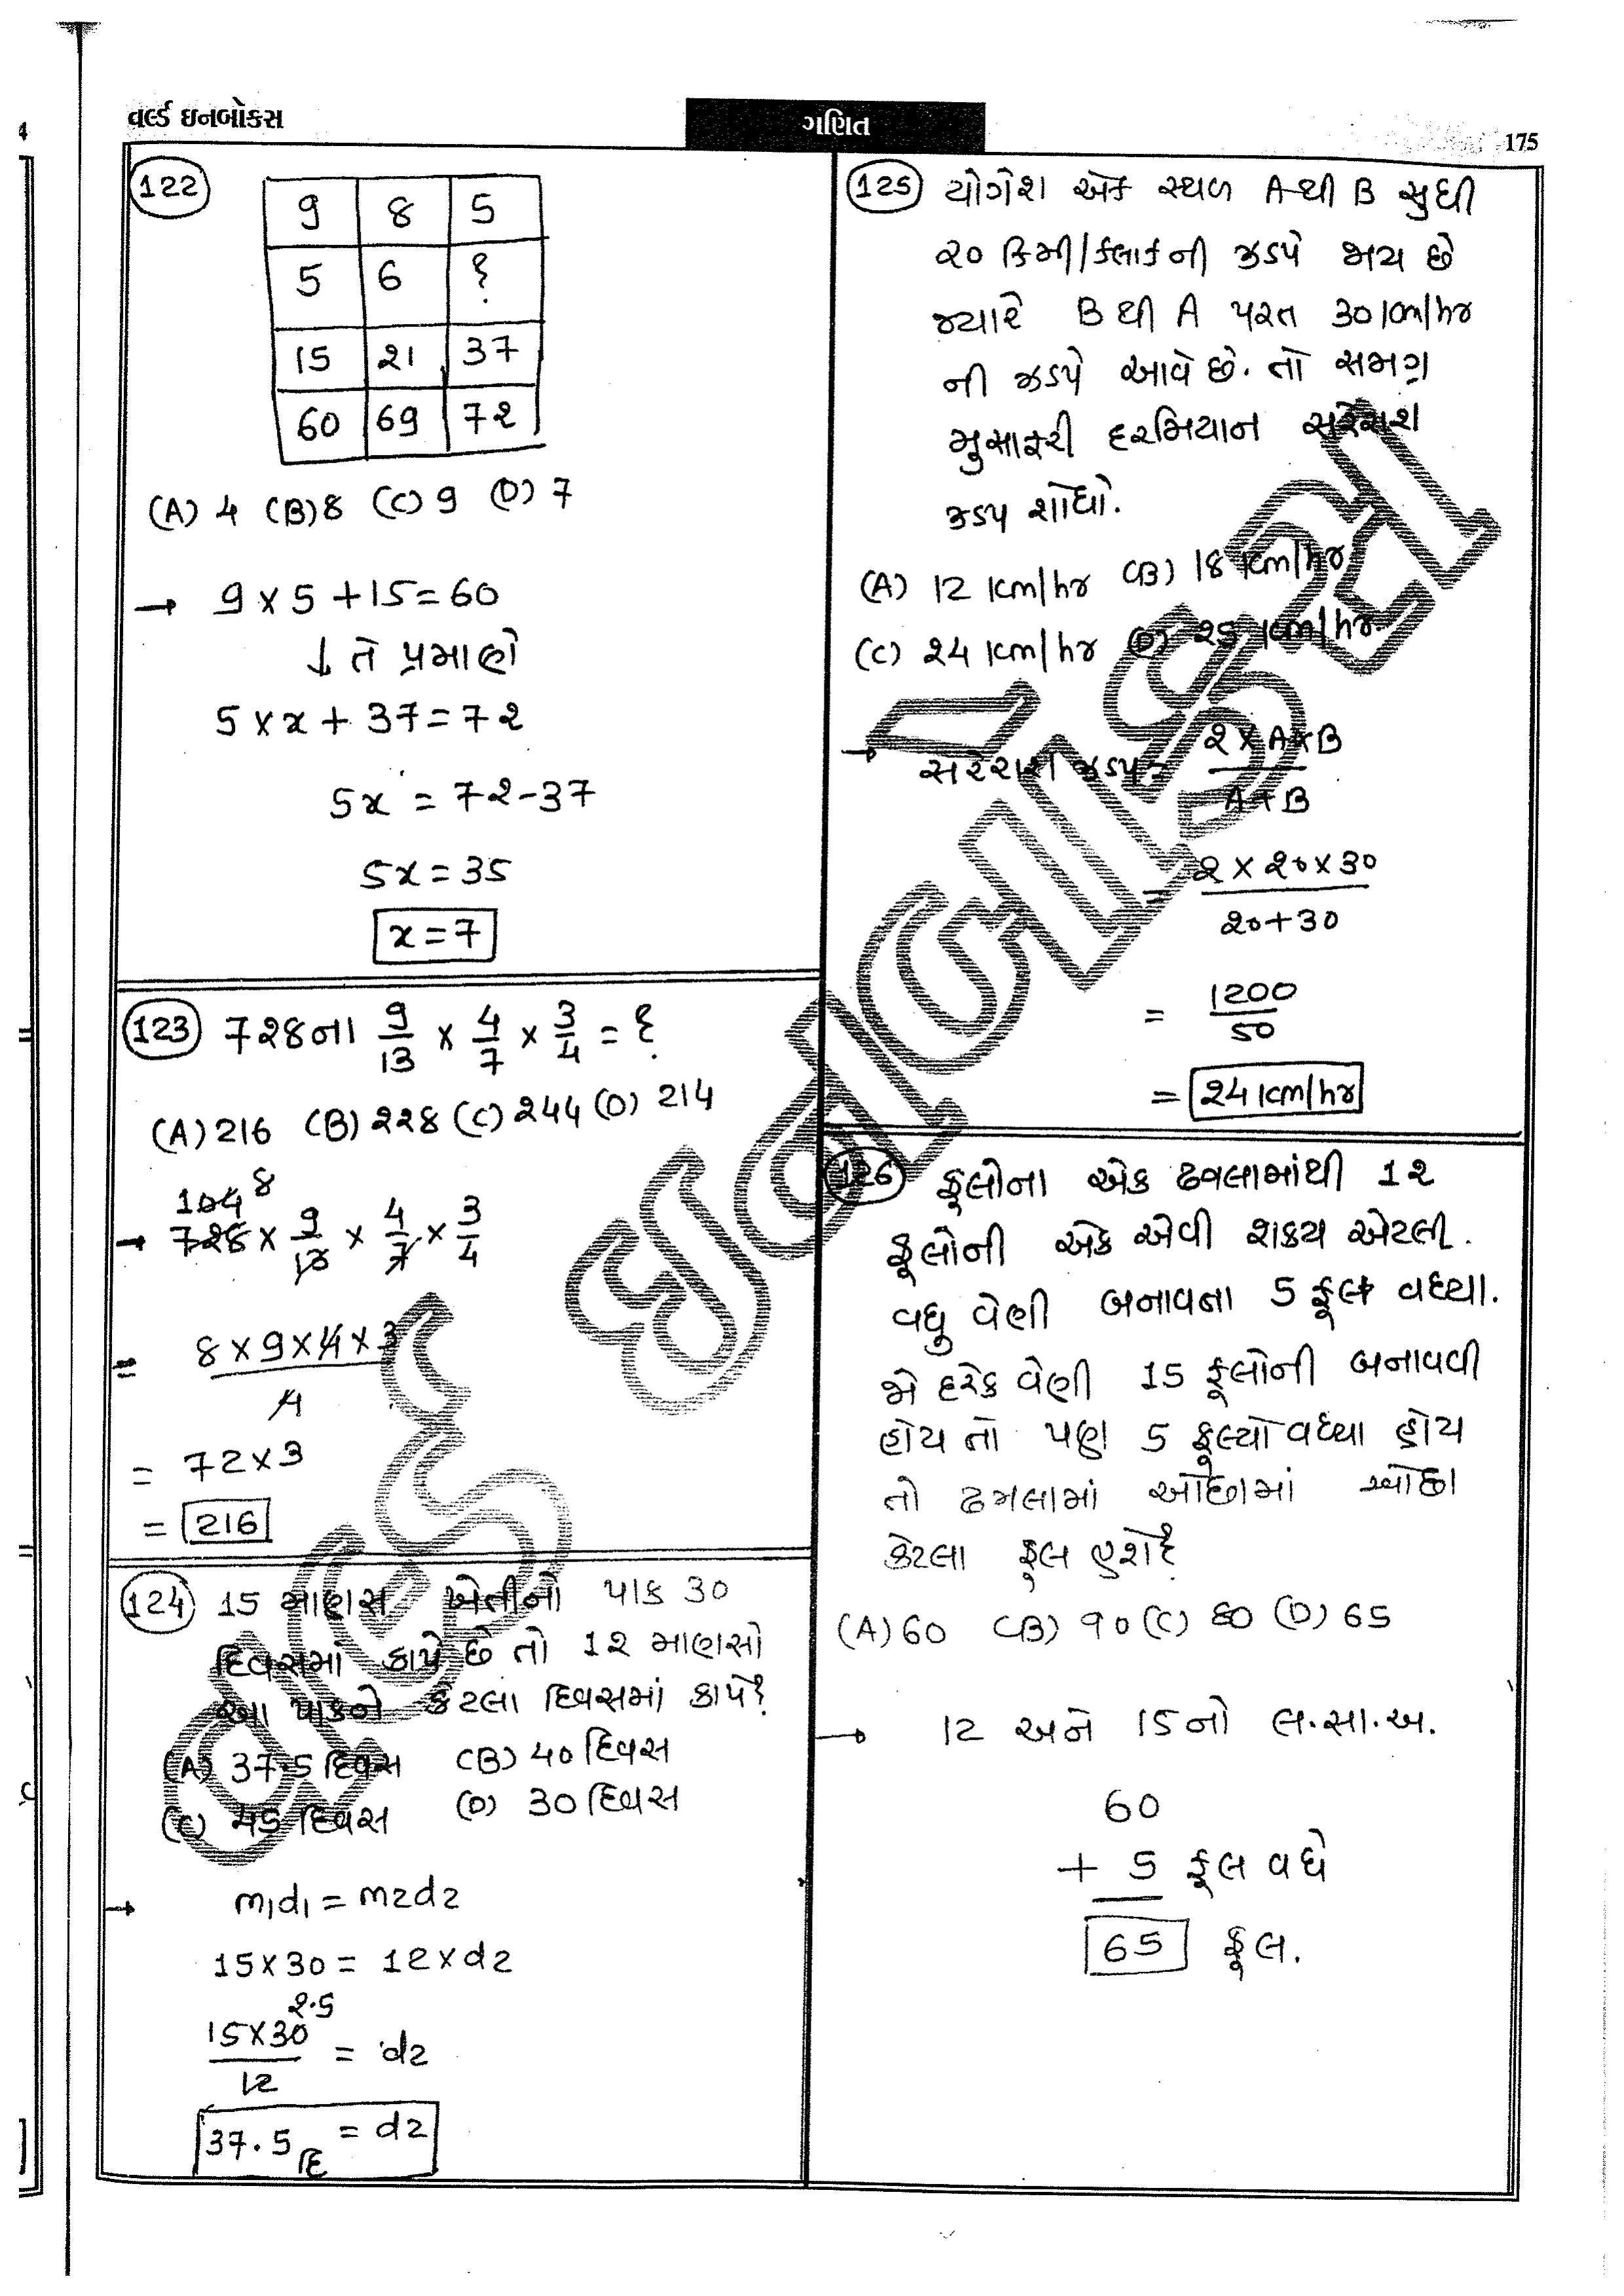 વર્લ્ડ ઇનબોક્સ
ગણિત
175
122
9 8 5
5 6 ?
15 21 37
60 69 72
(A) 4 (B) 8 (C) 9 (D) 7
→ 9 × 5 + 15 = 60
↓ તે પ્રમાણે
5 × x + 37 = 72
5x = 72 - 37
5x = 35
x = 7
123 728ના 9/13 × 4/7 × 3/4 = ?
(A) 216 (B) 228 (C) 244 (D) 214
104 8
→ 728 × 9/13 × 4/7 × 3/4
= 8 × 9 × 4 × 3
4
= 72 × 3
= 216
124 15 માણસ ખેતીનો પાક 30
દિવસમાં કાપે છે તો 12 માણસો
આ પાકને કેટલા દિવસમાં કાપે?
(A) 37.5 દિવસ (B) 40 દિવસ
(C) 45 દિવસ (D) 30 દિવસ
→ m1d1 = m2d2
15 × 30 = 12 × d2
2.5
15 × 30 / 12 = d2
37.5 દિ = d2
125 યોગેશ એક સ્થળ A થી B સુધી
૨૦ કિમી/કલાકની ઝડપે જાય છે
જ્યારે B થી A પરત 30 km/hr
ની ઝડપે આવે છે. તો સમગ્ર
મુસાફરી દરમિયાન સરેરાશ
ઝડપ શોધો.
(A) 12 km/hr (B) 18 km/hr
(C) 24 km/hr (D) 25 km/hr
→ સરેરાશ ઝડપ = 2 × A × B / A + B
= 2 × 20 × 30 / 20 + 30
= 1200 / 50
= 24 km/hr
126 ફૂલોના એક ઢગલામાંથી 12
ફૂલોની એક એવી શક્ય એટલી
વધુ વેણી બનાવતા 5 ફૂલ વધ્યા.
જો દરેક વેણી 15 ફૂલોની બનાવવી
હોય તો પણ 5 ફૂલ્યો વધ્યા હોય
તો ઢગલામાં ઓછામાં ઓછા
કેટલા ફૂલ હશે?
(A) 60 (B) 90 (C) 80 (D) 65
→ 12 અને 15નો લ.સા.અ.
60
+ 5 ફૂલ વધે
65 ફૂલ.